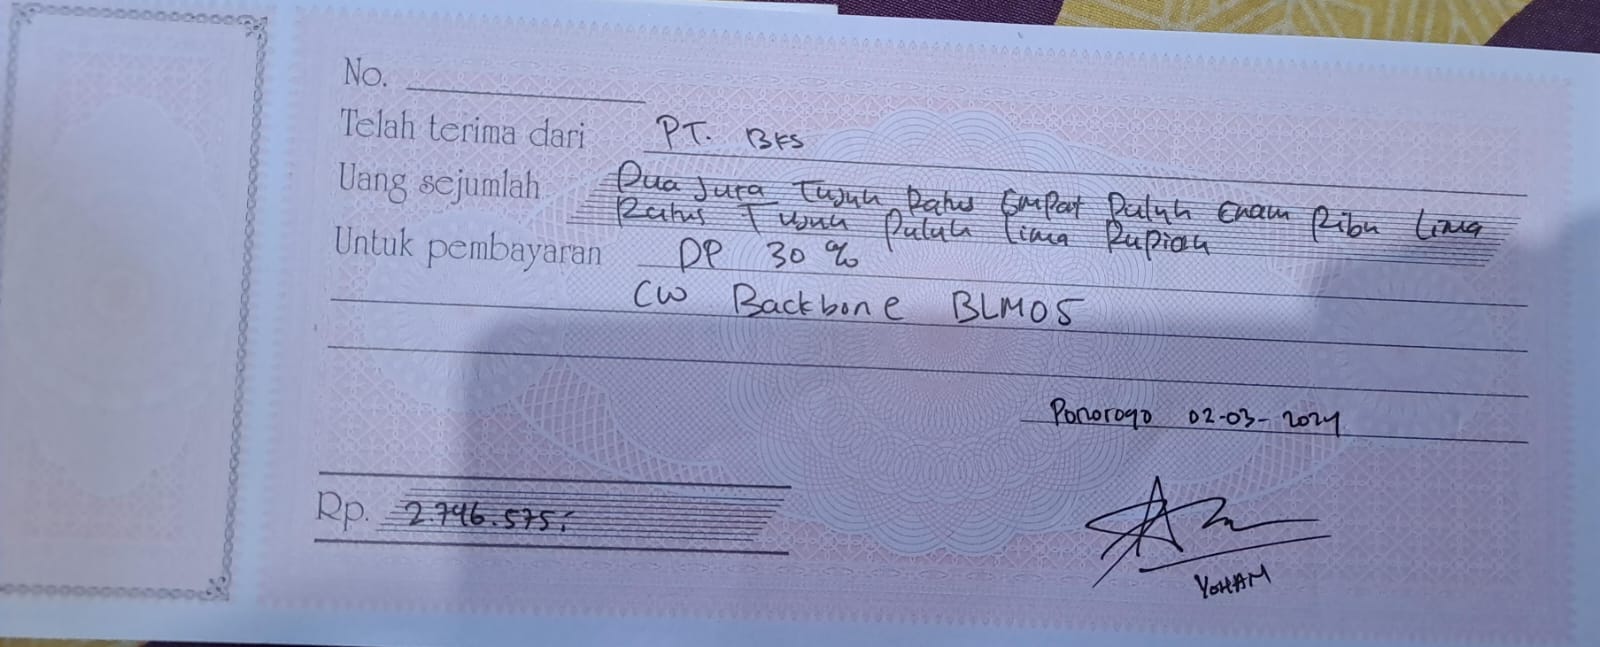 No.
Telah terima dari PT. BFS
Uang sejumlah Dua Juta Tujuh Ratus Empat Puluh Enam Ribu Lima
Ratus Tujuh Puluh Lima Rupiah
Untuk pembayaran DP 30 %
CW Backbone BLM05
Ponorogo 02-03-2024
Rp. 2.746.575,-
YOHAM